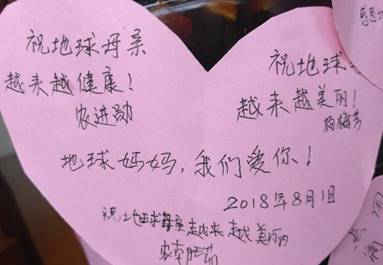 祝地球母亲
越来越健康！
农进勋
祝地球
越来越美丽！
杨梅芳
地球妈妈，我们爱你！
2018年8月1日
祝地球母亲越来越美丽
感恩